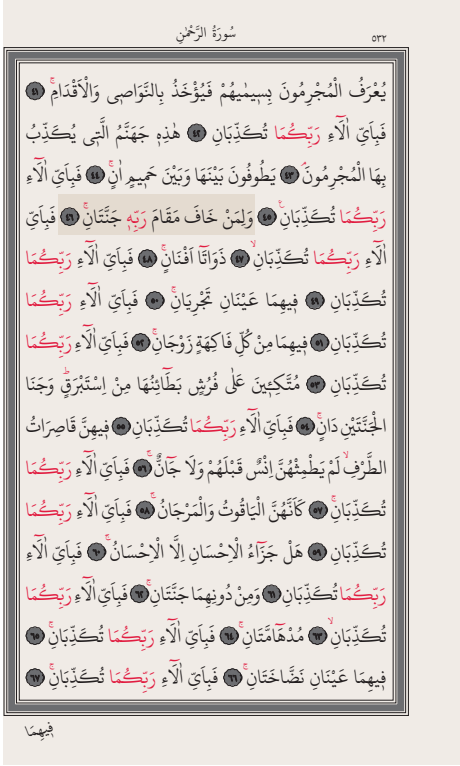 ٥٣٢ سُورَةُ الرَّحْمٰنِ
يُعْرَفُ الْمُجْرِمُونَ بِسٖيمٰيهُمْ فَيُؤْخَذُ بِالنَّوَاصٖى وَالْاَقْدَامِۚ ﴿٤١﴾
فَبِاَيِّ اٰلَٓاءِ رَبِّكُمَا تُكَذِّبَانِ ﴿٤٢﴾ هٰذِهٖ جَهَنَّمُ الَّتٖى يُكَذِّبُ
بِهَا الْمُجْرِمُونَۢ ﴿٤٣﴾ يَطُوفُونَ بَيْنَهَا وَبَيْنَ حَمٖيمٍ اٰنٍۚ ﴿٤٤﴾ فَبِاَيِّ اٰلَٓاءِ
رَبِّكُمَا تُكَذِّبَانِ۟ ﴿٤٥﴾ وَلِمَنْ خَافَ مَقَامَ رَبِّهٖ جَنَّتَانِۚ ﴿٤٦﴾ فَبِاَيِّ
اٰلَٓاءِ رَبِّكُمَا تُكَذِّبَانِۙ ﴿٤٧﴾ ذَوَاتَٓا اَفْنَانٍۚ ﴿٤٨﴾ فَبِاَيِّ اٰلَٓاءِ رَبِّكُمَا
تُكَذِّبَانِ ﴿٤٩﴾ فٖيهِمَا عَيْنَانِ تَجْرِيَانِۚ ﴿٥٠﴾ فَبِاَيِّ اٰلَٓاءِ رَبِّكُمَا
تُكَذِّبَانِ ﴿٥١﴾ فٖيهِمَا مِنْ كُلِّ فَاكِهَةٍ زَوْجَانِۚ ﴿٥٢﴾ فَبِاَيِّ اٰلَٓاءِ رَبِّكُمَا
تُكَذِّبَانِ ﴿٥٣﴾ مُتَّكِـٖٔينَ عَلٰى فُرُشٍ بَطَٓائِنُهَا مِنْ اِسْتَبْرَقٍۜ وَجَنَا
الْجَنَّتَيْنِ دَانٍۚ ﴿٥٤﴾ فَبِاَيِّ اٰلَٓاءِ رَبِّكُمَا تُكَذِّبَانِ ﴿٥٥﴾ فٖيهِنَّ قَاصِرَاتُ
الطَّرْفِۙ لَمْ يَطْمِثْهُنَّ اِنْسٌ قَبْلَهُمْ وَلَا جَٓانٌّۚ ﴿٥٦﴾ فَبِاَيِّ اٰلَٓاءِ رَبِّكُمَا
تُكَذِّبَانِۚ ﴿٥٧﴾ كَاَنَّهُنَّ الْيَاقُوتُ وَالْمَرْجَانُۚ ﴿٥٨﴾ فَبِاَيِّ اٰلَٓاءِ رَبِّكُمَا
تُكَذِّبَانِ ﴿٥٩﴾ هَلْ جَزَٓاءُ الْاِحْسَانِ اِلَّا الْاِحْسَانُۚ ﴿٦٠﴾ فَبِاَيِّ اٰلَٓاءِ
رَبِّكُمَا تُكَذِّبَانِ ﴿٦١﴾ وَمِنْ دُونِهِمَا جَنَّتَانِۚ ﴿٦٢﴾ فَبِاَيِّ اٰلَٓاءِ رَبِّكُمَا
تُكَذِّبَانِۙ ﴿٦٣﴾ مُدْهَٓامَّتَانِۚ ﴿٦٤﴾ فَبِاَيِّ اٰلَٓاءِ رَبِّكُمَا تُكَذِّبَانِۚ ﴿٦٥﴾
فٖيهِمَا عَيْنَانِ نَضَّاخَتَانِۚ ﴿٦٦﴾ فَبِاَيِّ اٰلَٓاءِ رَبِّكُمَا تُكَذِّبَانِۚ ﴿٦٧﴾
فٖيهِمَا